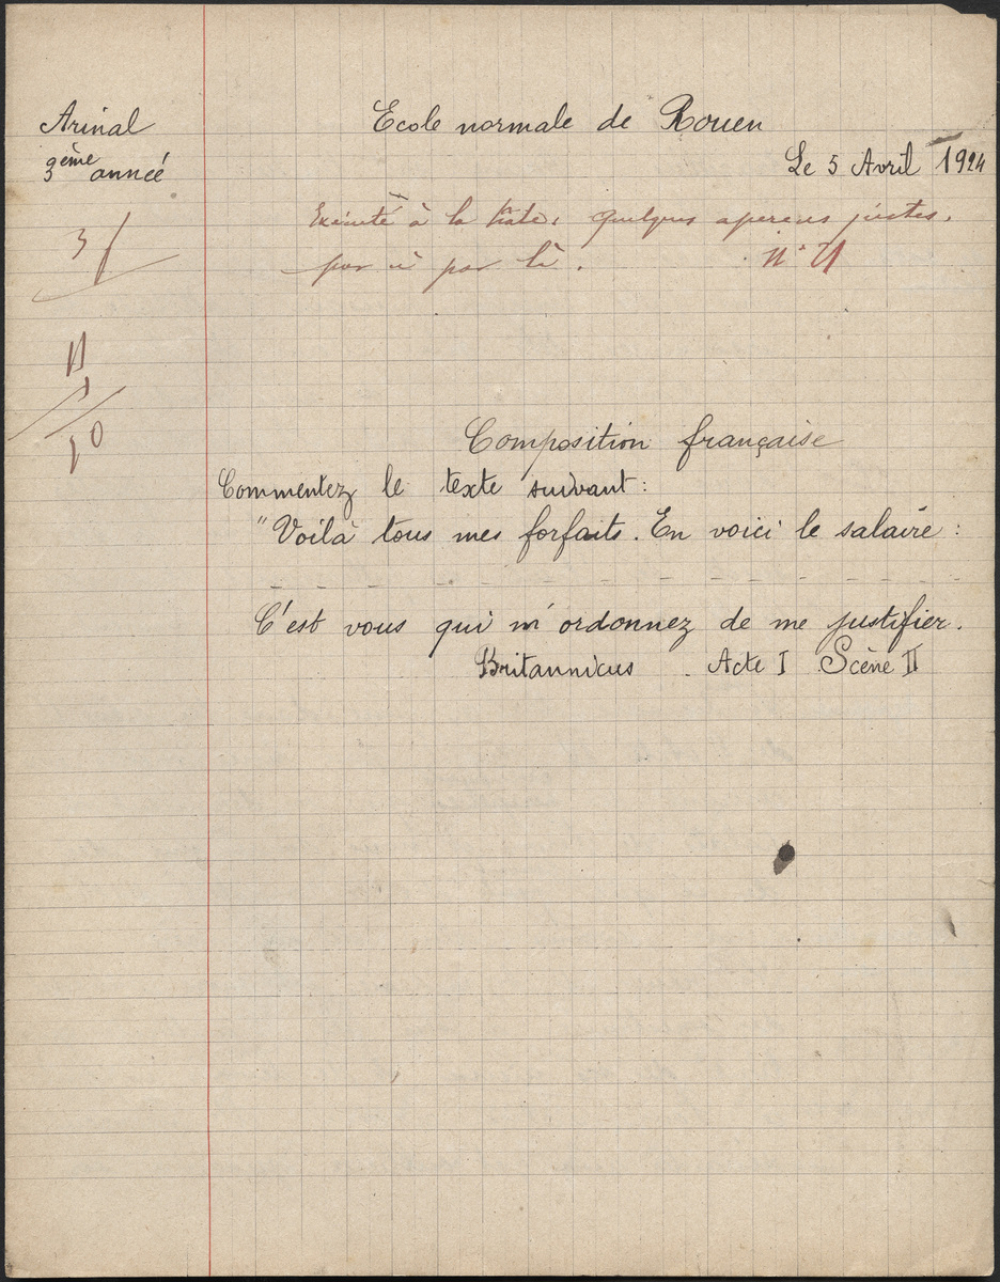 Arinal
Ecole normale de Rouen
3ème année
Le 5 Avril 1924
Exécuté à la hâte. quelques aperçus justes,
par ci par là. n°
Composition française
Commentez le texte suivant :
"Voilà tous mes forfaits. En voici le salaire :
C'est vous qui m'ordonnez de me justifier.
Britannicus . Acte I Scène II